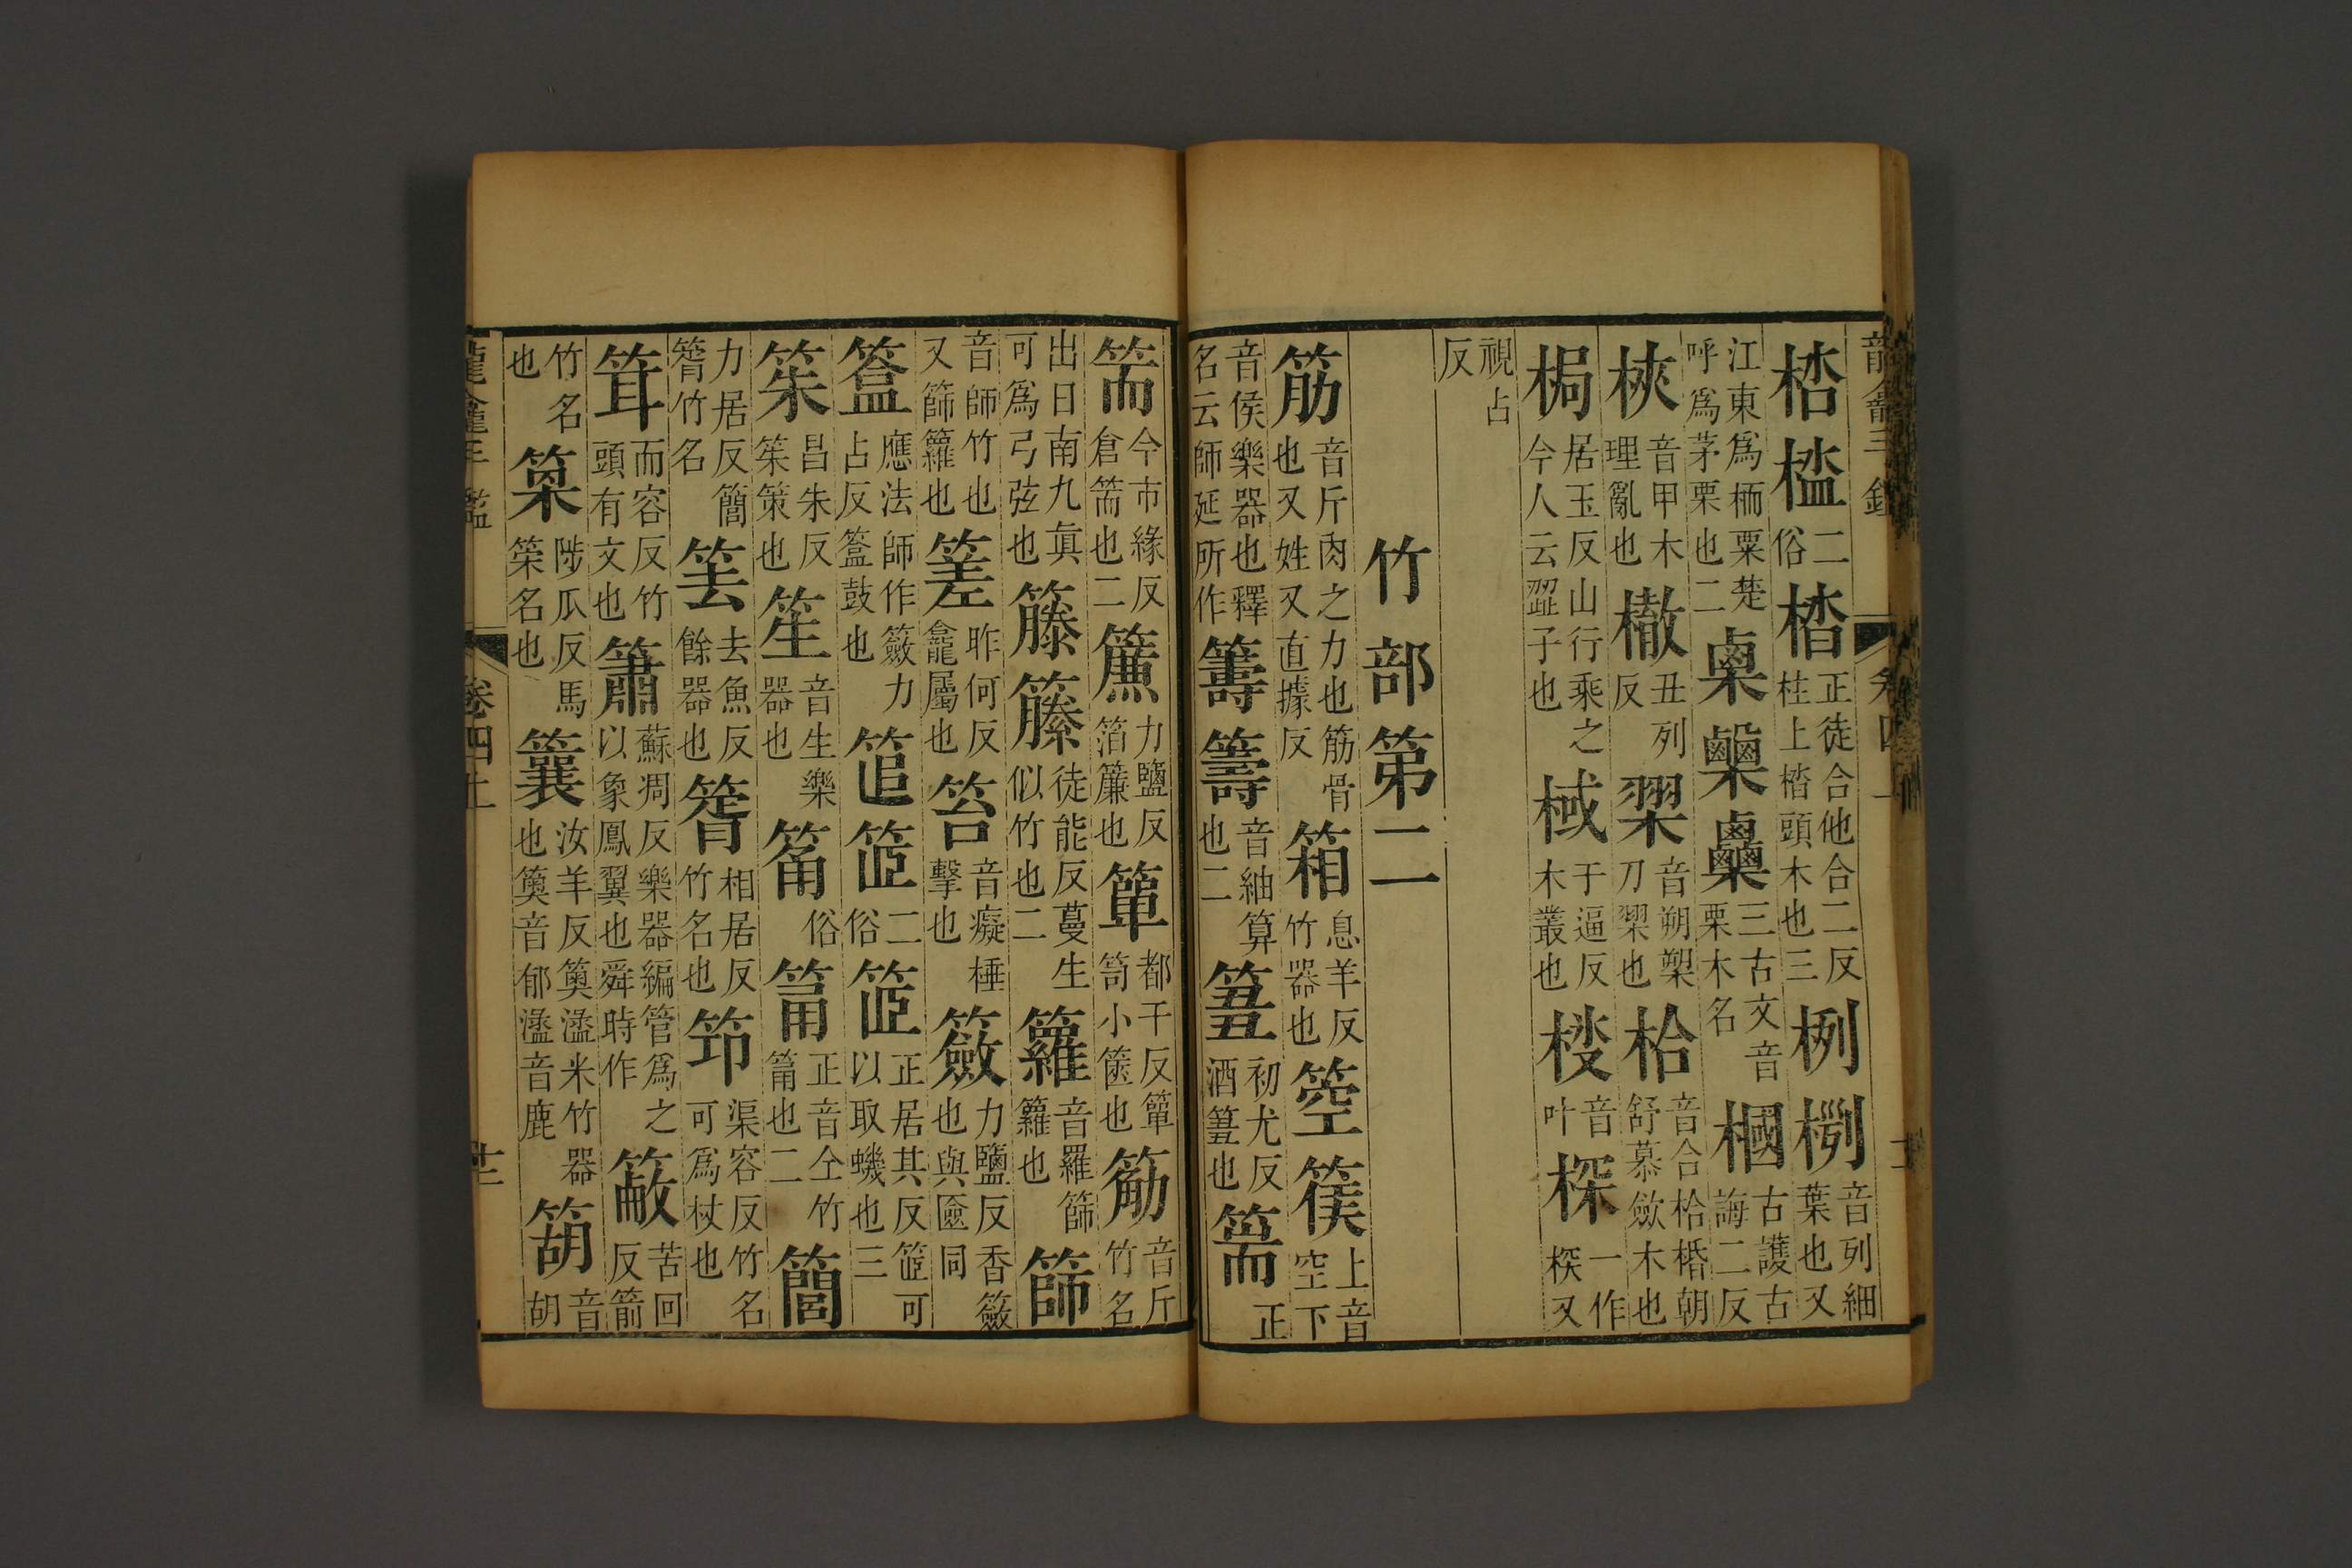 龍龕手鑑 卷四上
桰榼二俗榙正徒合他合二反桂上榙頭木也三栵㭞音列細葉也又
江東爲栭粟楚呼爲茅栗也二㮚三古文音栗木名棝古護古誨二反
梜音甲木理亂也㯙丑列反槊音朔槊刀槊也枱音合枱㮧朝舒慕斂木也
梮居玉反山行乘之今人云㱔子也棫于逼反木叢也音叶棎一作棎又
視占反
竹部第二
筋音斤肉之力也筋骨也又姓又直據反箱息羊反竹器也箜篌上音空下
音侯樂器也釋名云師延所作籌音紬算也二䈅初尤反酒䈅也篅正
今市緣反倉篅也二簾力鹽反箔簾也簞都干反簞笥小篋也筋音斤竹名
出日南九真可爲弓弦也籐籘徒能反蔓生似竹也二籮音羅篩籮也篩
音師竹也又篩籮也䇟昨何反龕屬也笞音癡棰擊也籢力鹽反香籢也與匳同
簽應法師作籢力占反簽鼓也二俗正居其反可以取蟣也三
笨昌朱反策也笙音生樂器也筩俗筩正音仝竹筩也二簡
力居反簡箵竹名笑去魚反餘器也箵相居反竹名也笻渠容反竹名可爲杖也
茸而容反竹頭有文也簫蘇凋反樂器編管爲之以象鳳翼也舜時作䉒苦回反箭
竹名也䈟陟瓜反馬䇠名也䉴汝羊反䉛㵋米竹器也䉛音郁㵋音鹿箶音胡
龍龕手鑑 卷四上 十二